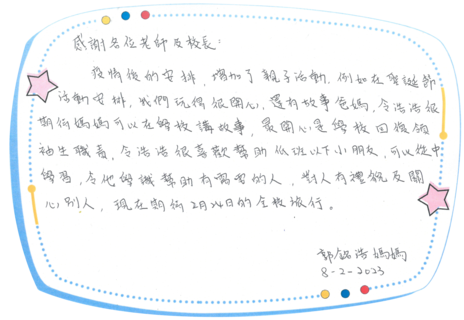 感謝各位老師及校長：
疫情後的安排，增加了親子活動，例如在聖誕節
活動安排，我們玩得很開心，還有故事爸媽，令浩浩很
期待媽媽可以在學校講故事，最開心是學校回復領
袖生職責，令浩浩很喜歡幫助低班以下小朋友，可以從中
學習，令他學識幫助有需要的人，對人有禮貌及關
心別人，現在期待2月24日的全校旅行。
郭 浩媽媽
8-2-2023